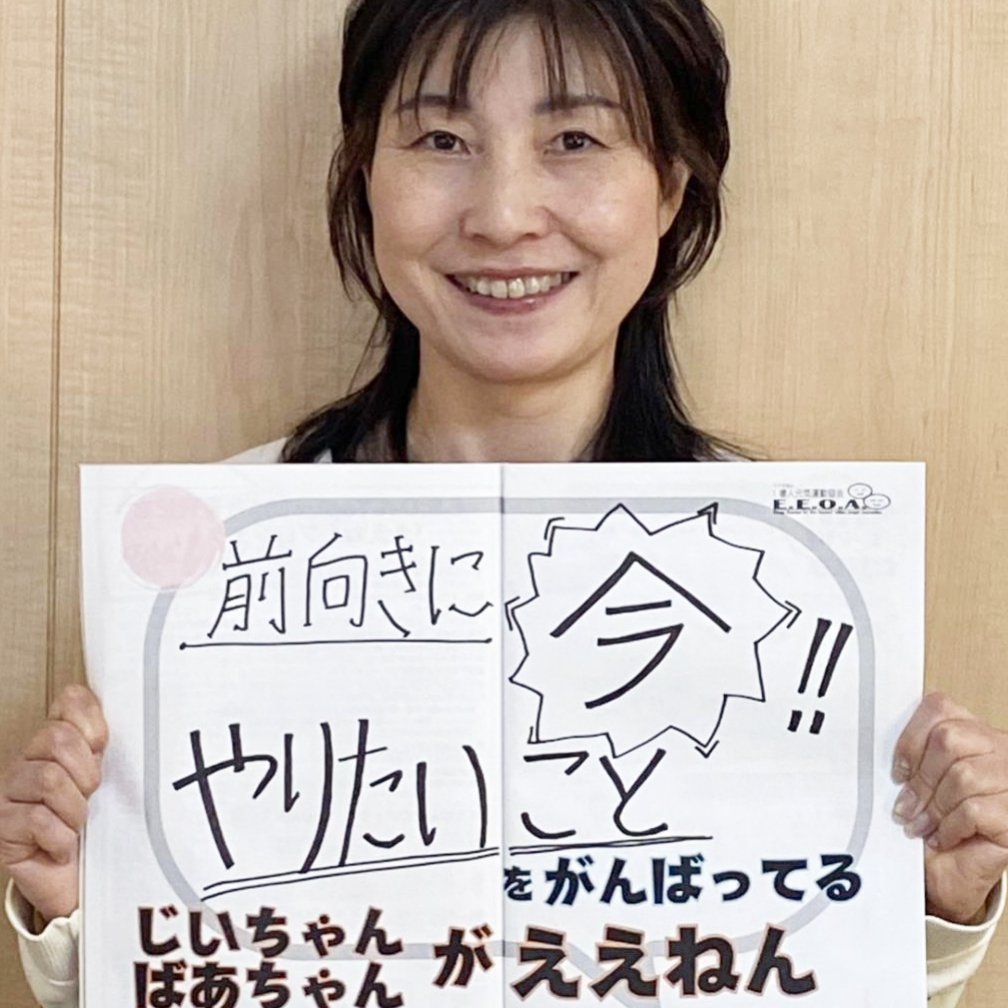 1億人元気運動協会
E.E.O.A.
前向きに 今!!
やりたいこと
をがんばってる
じいちゃん
ばあちゃん
がええねん